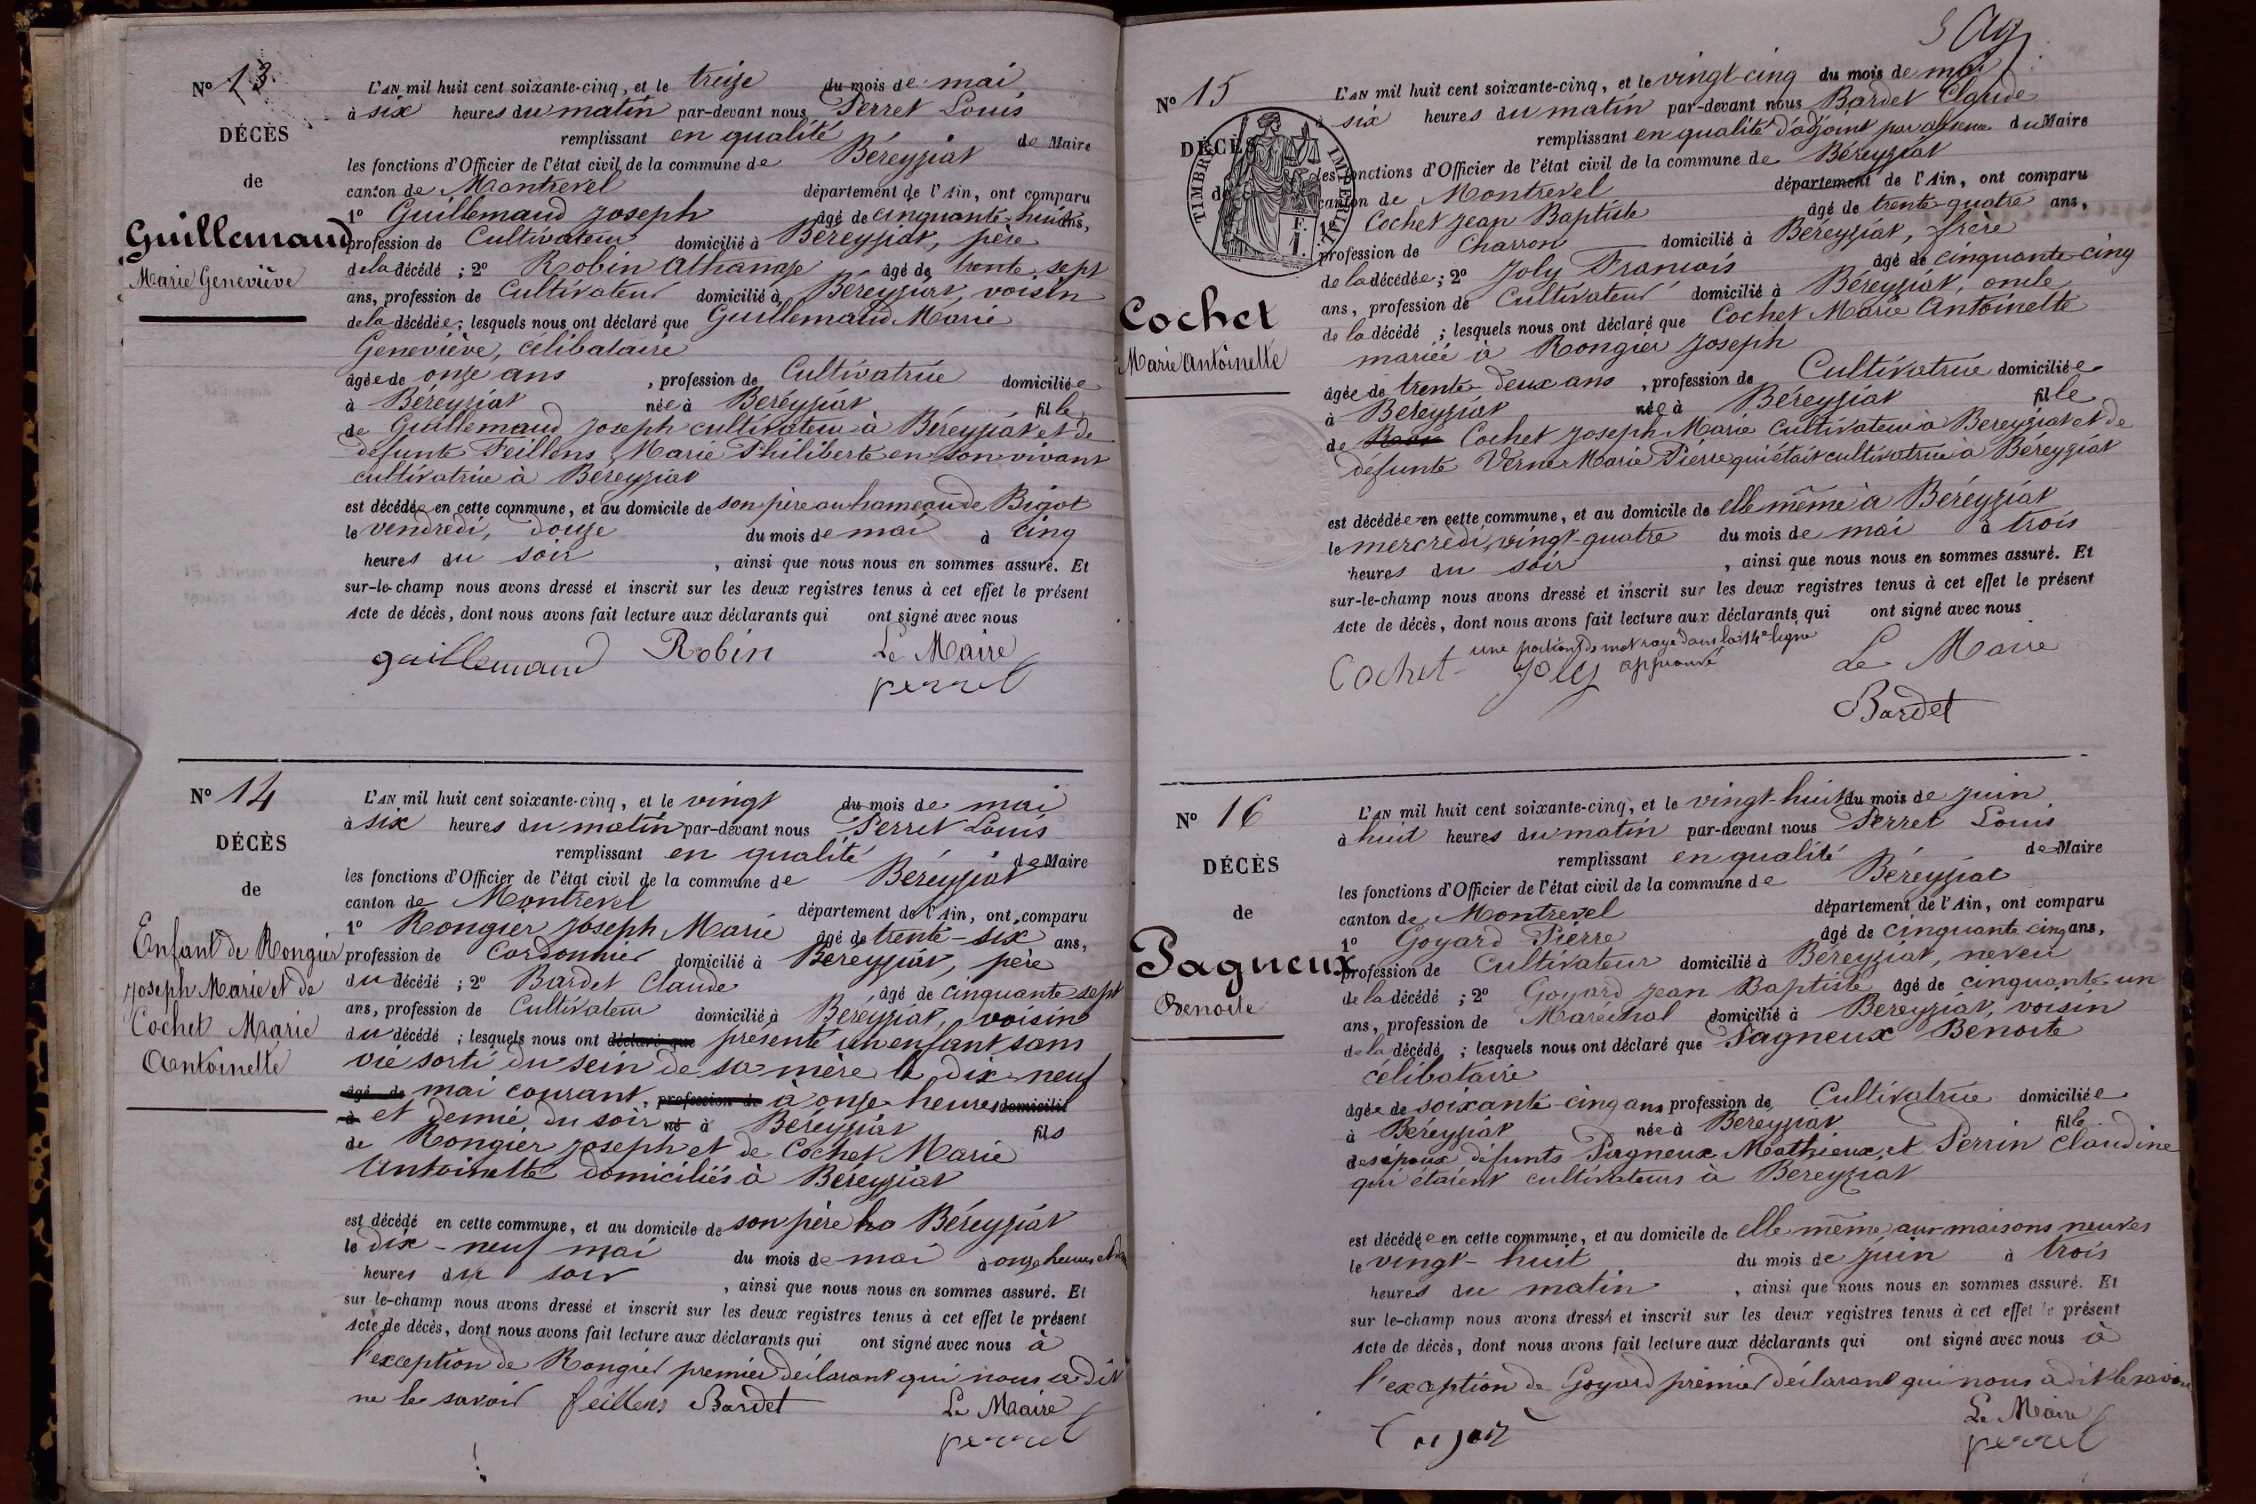 N° 13.
DÉCÈS
de
Guillemaud
Marie Geneviève
L'AN mil huit cent soixante-cinq, et le treize du mois de mai
à six heures du matin par-devant nous Perret Louis
remplissant en qualité de Maire
les fonctions d'Officier de l'état civil de la commune de Béreyziat
canton de Montrevel département de l'Ain, ont comparu
1° Guillemaud Joseph âgé de cinquante-huit ans,
profession de Cultivateur domicilié à Béreyziat, père
de la décédé ; 2° Robin Athanaze âgé de trente-sept
ans, profession de Cultivateur domicilié à Béreyziat, voisin
de la décédée ; lesquels nous ont déclaré que Guillemaud Marie
Geneviève, célibataire
âgée de onze ans , profession de Cultivatrice domiciliée
à Béreyziat née à Béreyziat fille
de Guillemaud Joseph cultivateur à Béreyziat et de
défunte Feillens Marie Philiberte en son vivant
cultivatrice à Béreyziat
est décédée en cette commune, et au domicile de son père au hameau de Bigot
le vendredi, douze du mois de mai à cinq
heures du soir , ainsi que nous nous en sommes assuré. Et
sur-le-champ nous avons dressé et inscrit sur les deux registres tenus à cet effet le présent
Acte de décès, dont nous avons fait lecture aux déclarants qui ont signé avec nous
guillemaud Robin Le Maire
perret
N° 14
DÉCÈS
de
Enfant de Rongier
Joseph Marie et de
Cochet Marie
Antoinette
L'AN mil huit cent soixante-cinq, et le vingt du mois de mai
à six heures du matin par-devant nous Perret Louis
remplissant en qualité de Maire
les fonctions d'Officier de l'état civil de la commune de Béreyziat
canton de Montrevel département de l'Ain, ont comparu
1° Rongier Joseph Marie âgé de trente-six ans,
profession de Cordonnier domicilié à Béreyziat, père
du décédé ; 2° Bardet Claude âgé de cinquante sept
ans, profession de Cultivateur domicilié à Béreyziat, voisin
du décédé ; lesquels nous ont déclaré que présenté un enfant sans
vie sorti du sein de sa mère le dix-neuf
âgé de mai courant, profession de à onze heures domicilié
à et demie du soir né à Béreyziat fils
de Rongier Joseph et de Cochet Marie
Antoinette domiciliés à Béreyziat
est décédé en cette commune, et au domicile de son père Béreyziat
le dix-neuf mai du mois de mai à onze heures
heures du soir , ainsi que nous nous en sommes assuré. Et
sur-le-champ nous avons dressé et inscrit sur les deux registres tenus à cet effet le présent
Acte de décès, dont nous avons fait lecture aux déclarants qui ont signé avec nous à
l'exception de Rongier premier déclarant qui nous a dit
ne le savoir feillens Bardet Le Maire
perret
N° 15
DÉCÈS
de
TIMBRE IMPÉRIAL
Cochet
Marie Antoinette
L'AN mil huit cent soixante-cinq, et le vingt-cinq du mois de mai
à six heures du matin par-devant nous Bardet Claude
remplissant en qualité d'adjoint par absence du Maire
les fonctions d'Officier de l'état civil de la commune de Béreyziat
canton de Montrevel département de l'Ain, ont comparu
1° Cochet Jean Baptiste âgé de trente-quatre ans,
profession de Charron domicilié à Béreyziat, frère
de la décédée ; 2° Joly François âgé de cinquante-cinq
ans, profession de Cultivateur domicilié à Béreyziat, oncle
de la décédé ; lesquels nous ont déclaré que Cochet Marie Antoinette
mariée à Rongier Joseph
âgée de trente-deux ans , profession de Cultivatrice domiciliée
à Béreyziat née à Béreyziat fille
de Cochet Joseph Marie Cultivateur à Béreyziat et de
défunte Verne Marie Pierre qui était cultivatrice à Béreyziat
est décédée en cette commune, et au domicile de elle même à Béreyziat
le mercredi, vingt-quatre du mois de mai à trois
heures du soir , ainsi que nous nous en sommes assuré. Et
sur-le-champ nous avons dressé et inscrit sur les deux registres tenus à cet effet le présent
Acte de décès, dont nous avons fait lecture aux déclarants qui ont signé avec nous
une portion de mot rayé dans la 14e ligne
approuvé
Cochet Joly Le Maire
Bardet
N° 16
DÉCÈS
de
Pagneux
Benoite
L'AN mil huit cent soixante-cinq, et le vingt-huit du mois de juin
à huit heures du matin par-devant nous Perret Louis
remplissant en qualité de Maire
les fonctions d'Officier de l'état civil de la commune de Béreyziat
canton de Montrevel département de l'Ain, ont comparu
1° Goyard Pierre âgé de cinquante cinq ans,
profession de Cultivateur domicilié à Béreyziat, neveu
de la décédé ; 2° Goyard Jean Baptiste âgé de cinquante-un
ans, profession de Maréchal domicilié à Béreyziat, voisin
de la décédé ; lesquels nous ont déclaré que Pagneux Benoite
célibataire
âgée de soixante-cinq ans profession de Cultivatrice domiciliée
à Béreyziat née à Béreyziat fille
des époux défunts Pagneux Mathieux, et Perrin Claudine
qui étaient cultivateurs à Béreyziat
est décédée en cette commune, et au domicile de elle même aux maisons neuves
le vingt-huit du mois de juin à trois
heures du matin , ainsi que nous nous en sommes assuré. Et
sur le-champ nous avons dressé et inscrit sur les deux registres tenus à cet effet le présent
Acte de décès, dont nous avons fait lecture aux déclarants qui ont signé avec nous à
l'exception de Goyard premier déclarant qui nous a dit le savoir
Le Maire
perret